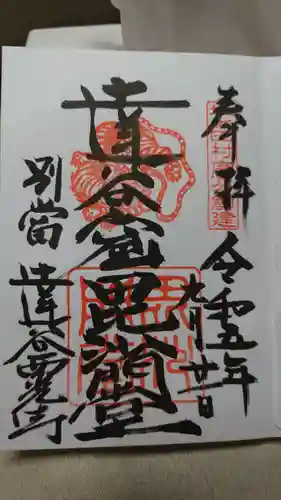 奉拝
令和五年
九月廿一日
達谷窟毘沙門堂
別當
達谷西光寺